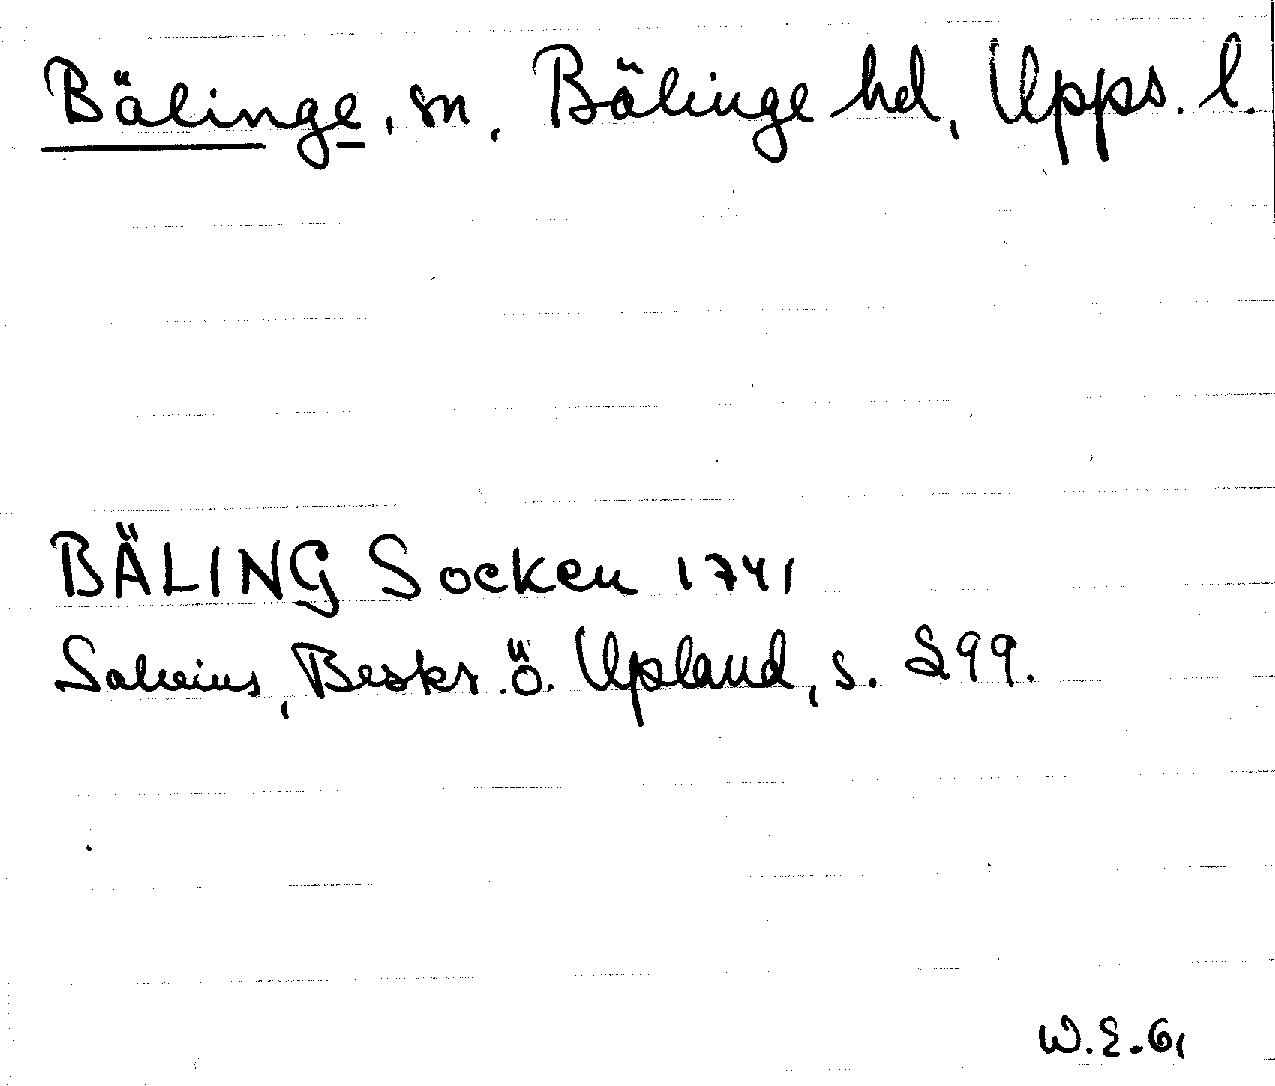 Bälinge, sn, Bälinge hd, Upps. l.
BÄLING Socken 1741
Salvius, Beskr. ö. Upland, s. 299.
W.E.G.